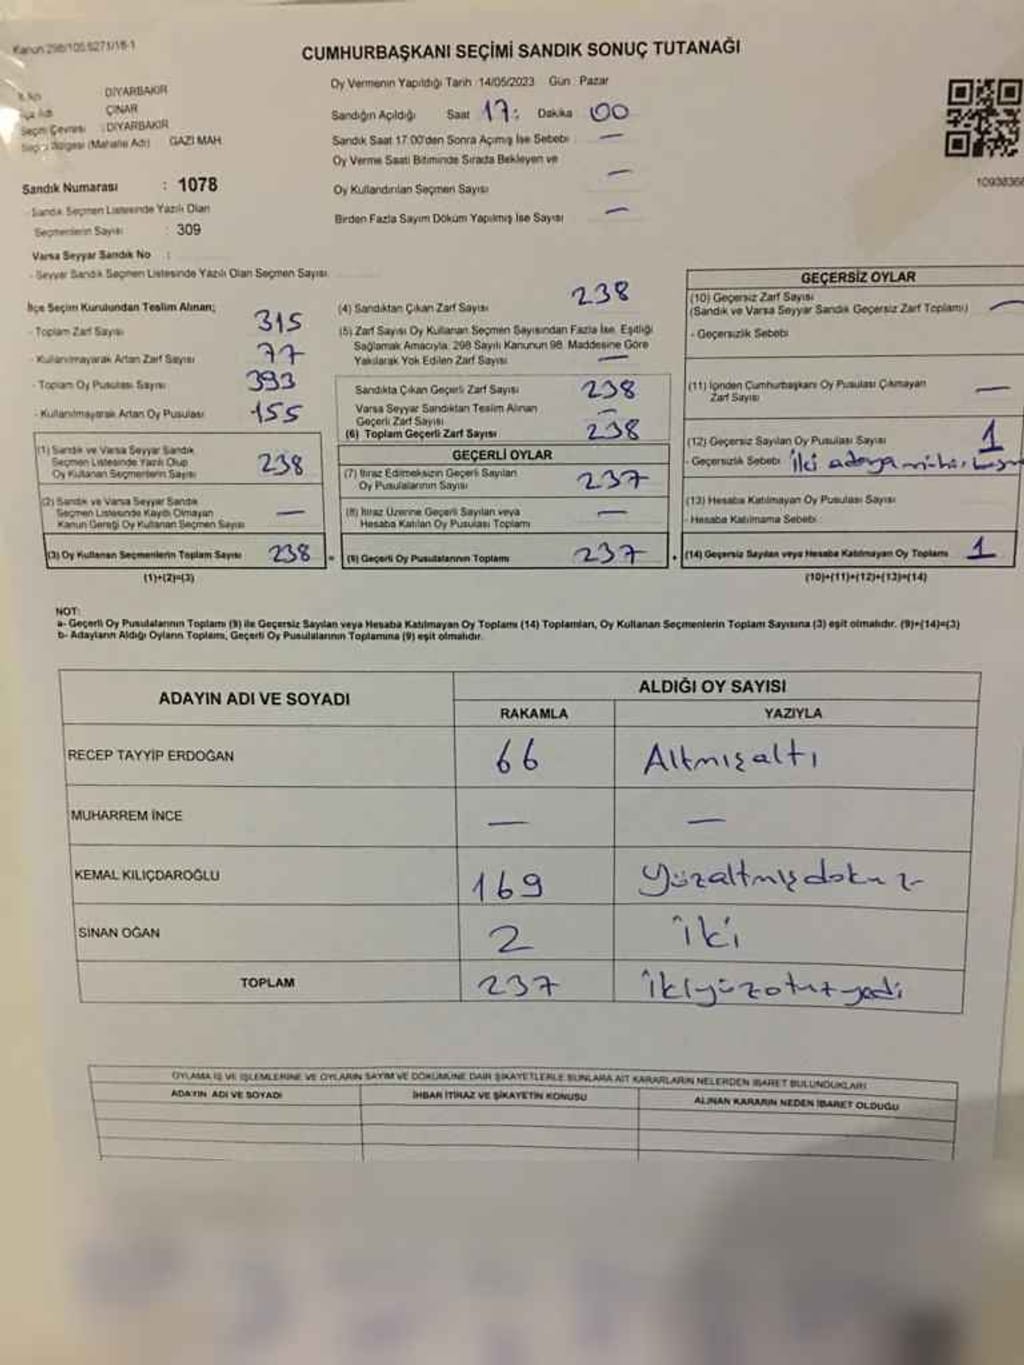 Kanun 298/105.5271/18-1
CUMHURBAŞKANI SEÇİMİ SANDIK SONUÇ TUTANAĞI
Oy Vermenin Yapıldığı Tarih :14/05/2023 Gün : Pazar
DİYARBAKIR
ÇINAR
Seçim Çevresi : DİYARBAKIR
Bölgesi (Mahalle Adı) GAZİ MAH.
Sandığın Açıldığı Saat 17: Dakika 00
Sandık Saat 17.00'den Sonra Açılmış İse Sebebi : —
Oy Verme Saati Bitiminde Sırada Bekleyen ve
Oy Kullandırılan Seçmen Sayısı —
Birden Fazla Sayım Döküm Yapılmış İse Sayısı —
1093836
Sandık Numarası : 1078
- Sandık Seçmen Listesinde Yazılı Olan
Seçmenlerin Sayısı : 309
Varsa Seyyar Sandık No :
- Seyyar Sandık Seçmen Listesinde Yazılı Olan Seçmen Sayısı
İlçe Seçim Kurulundan Teslim Alınan;
- Toplam Zarf Sayısı 315
- Kullanılmayarak Artan Zarf Sayısı 77
- Toplam Oy Pusulası Sayısı 393
- Kullanılmayarak Artan Oy Pusulası 155
(1) Sandık ve Varsa Seyyar Sandık
Seçmen Listesinde Yazılı Olup
Oy Kullanan Seçmenlerin Sayısı 238
(2) Sandık ve Varsa Seyyar Sandık
Seçmen Listesinde Kayıtlı Olmayan
Kanun Gereği Oy Kullanan Seçmen Sayısı —
(3) Oy Kullanan Seçmenlerin Toplam Sayısı 238
(1)+(2)=(3)
(4) Sandıktan Çıkan Zarf Sayısı 238
(5) Zarf Sayısı Oy Kullanan Seçmen Sayısından Fazla İse, Eşitliği
Sağlamak Amacıyla, 298 Sayılı Kanunun 98. Maddesine Göre
Yakılarak Yok Edilen Zarf Sayısı —
Sandıkta Çıkan Geçerli Zarf Sayısı 238
Varsa Seyyar Sandıktan Teslim Alınan
Geçerli Zarf Sayısı —
(6) Toplam Geçerli Zarf Sayısı 238
GEÇERLİ OYLAR
(7) İtiraz Edilmeksizin Geçerli Sayılan
Oy Pusulalarının Sayısı 237
(8) İtiraz Üzerine Geçerli Sayılan veya
Hesaba Katılan Oy Pusulası Toplamı —
= (9) Geçerli Oy Pusulalarının Toplamı 237 +
GEÇERSİZ OYLAR
(10) Geçersiz Zarf Sayısı
(Sandık ve Varsa Seyyar Sandık Geçersiz Zarf Toplamı) —
- Geçersizlik Sebebi :
(11) İçinden Cumhurbaşkanı Oy Pusulası Çıkmayan
Zarf Sayısı —
(12) Geçersiz Sayılan Oy Pusulası Sayısı 1
- Geçersizlik Sebebi : İki adaya mühür
(13) Hesaba Katılmayan Oy Pusulası Sayısı
- Hesaba Katılmama Sebebi :
(14) Geçersiz Sayılan veya Hesaba Katılmayan Oy Toplamı 1
(10)+(11)+(12)+(13)=(14)
NOT:
a- Geçerli Oy Pusulalarının Toplamı (9) ile Geçersiz Sayılan veya Hesaba Katılmayan Oy Toplamı (14) Toplamları, Oy Kullanan Seçmenlerin Toplam Sayısına (3) eşit olmalıdır. (9)+(14)=(3)
b- Adayların Aldığı Oyların Toplamı, Geçerli Oy Pusulalarının Toplamına (9) eşit olmalıdır.
ADAYIN ADI VE SOYADI ALDIĞI OY SAYISI
RAKAMLA YAZIYLA
RECEP TAYYİP ERDOĞAN 66 Altmışaltı
MUHARREM İNCE — —
KEMAL KILIÇDAROĞLU 169 Yüzaltmışdokuz
SİNAN OĞAN 2 İki
TOPLAM 237 İkiyüzotuzyedi
OYLAMA İŞ VE İŞLEMLERİNE VE OYLARIN SAYIM VE DÖKÜMÜNE DAİR ŞİKAYETLERLE BUNLARA AİT KARARLARIN NELERDEN İBARET BULUNDUKLARI
ADAYIN ADI VE SOYADI İHBAR İTİRAZ VE ŞİKAYETİN KONUSU ALINAN KARARIN NEDEN İBARET OLDUĞU